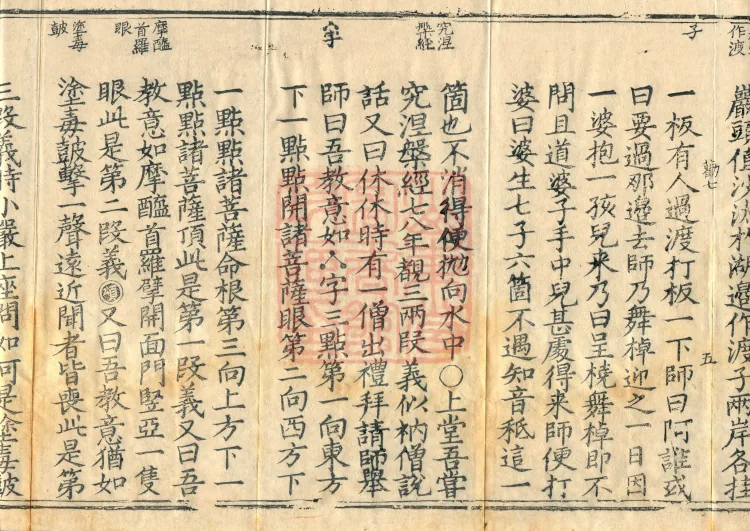 作渡
子
巖頭值沙汰於湖邊作渡子兩岸各挂
一板有人過渡打板一下師曰阿誰或
七
五
曰要過那邊去師乃舞棹迎之一日因
一婆抱一孩兒来乃曰呈橈舞棹即不
問且道婆子手中兒甚處得来師便打
婆曰婆生七子六箇不遇知音秖這一
究涅
槃經
箇也不消得便抛向水中〇上堂吾甞
究涅槃經七八年覩三兩段義似衲僧說
話又曰休休時有一僧出禮拜請師舉
∴字
師曰吾教意如∴字三點第一向東方
下一點點開諸菩薩眼第二向西方下
一點點諸菩薩命根第三向上方下一
點點諸菩薩頂此是第一段義又曰吾
摩醯
首羅
眼
教意如摩醯首羅擘開面門竪亞一隻
眼此是第二段義又曰吾教意猶如
塗毒
皷
塗毒皷擊一聲遠近聞者皆喪此是第
三段義時小嚴上座問如何是塗毒皷